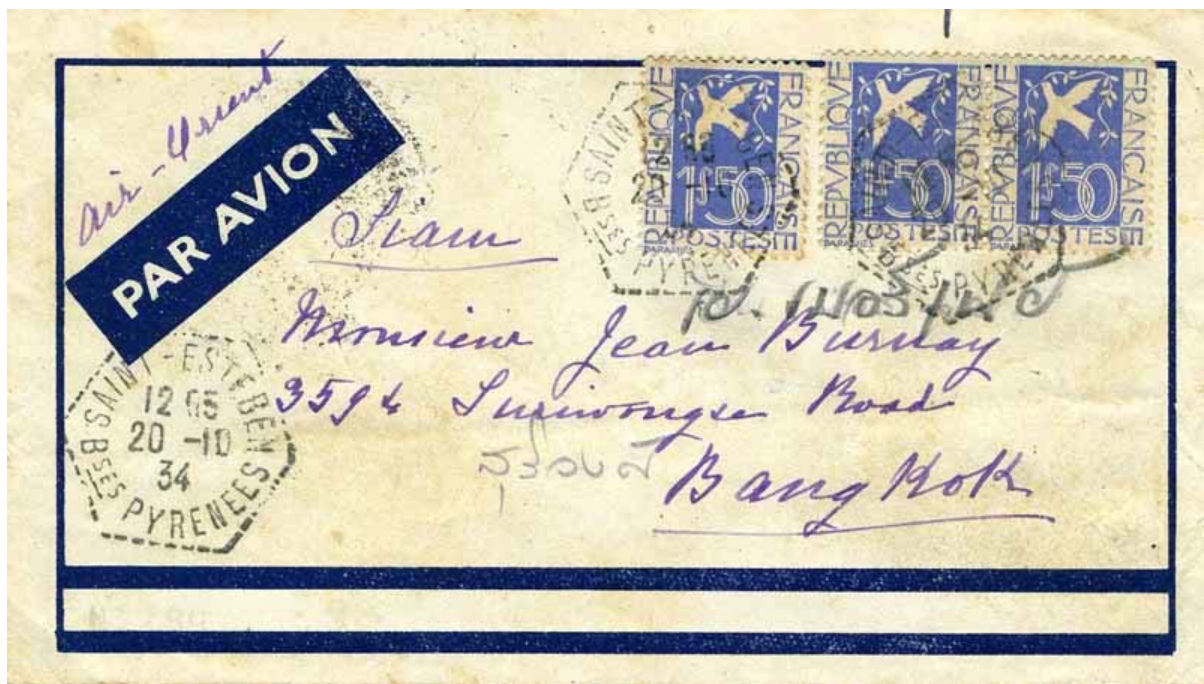 air-Orient
PAR AVION
REPVBLIQVE FRANÇAISE
1f50
POSTES
REPVBLIQVE FRANÇAISE
1f50
POSTES
REPVBLIQVE FRANÇAISE
1f50
POSTES
Siam
Monsieur Jean Burnay
3594 Suriwongse Road
สุริวงษ์
Bangkok
SAINT-ESTEBEN
12 05
20 -10
34
BSES PYRENEES